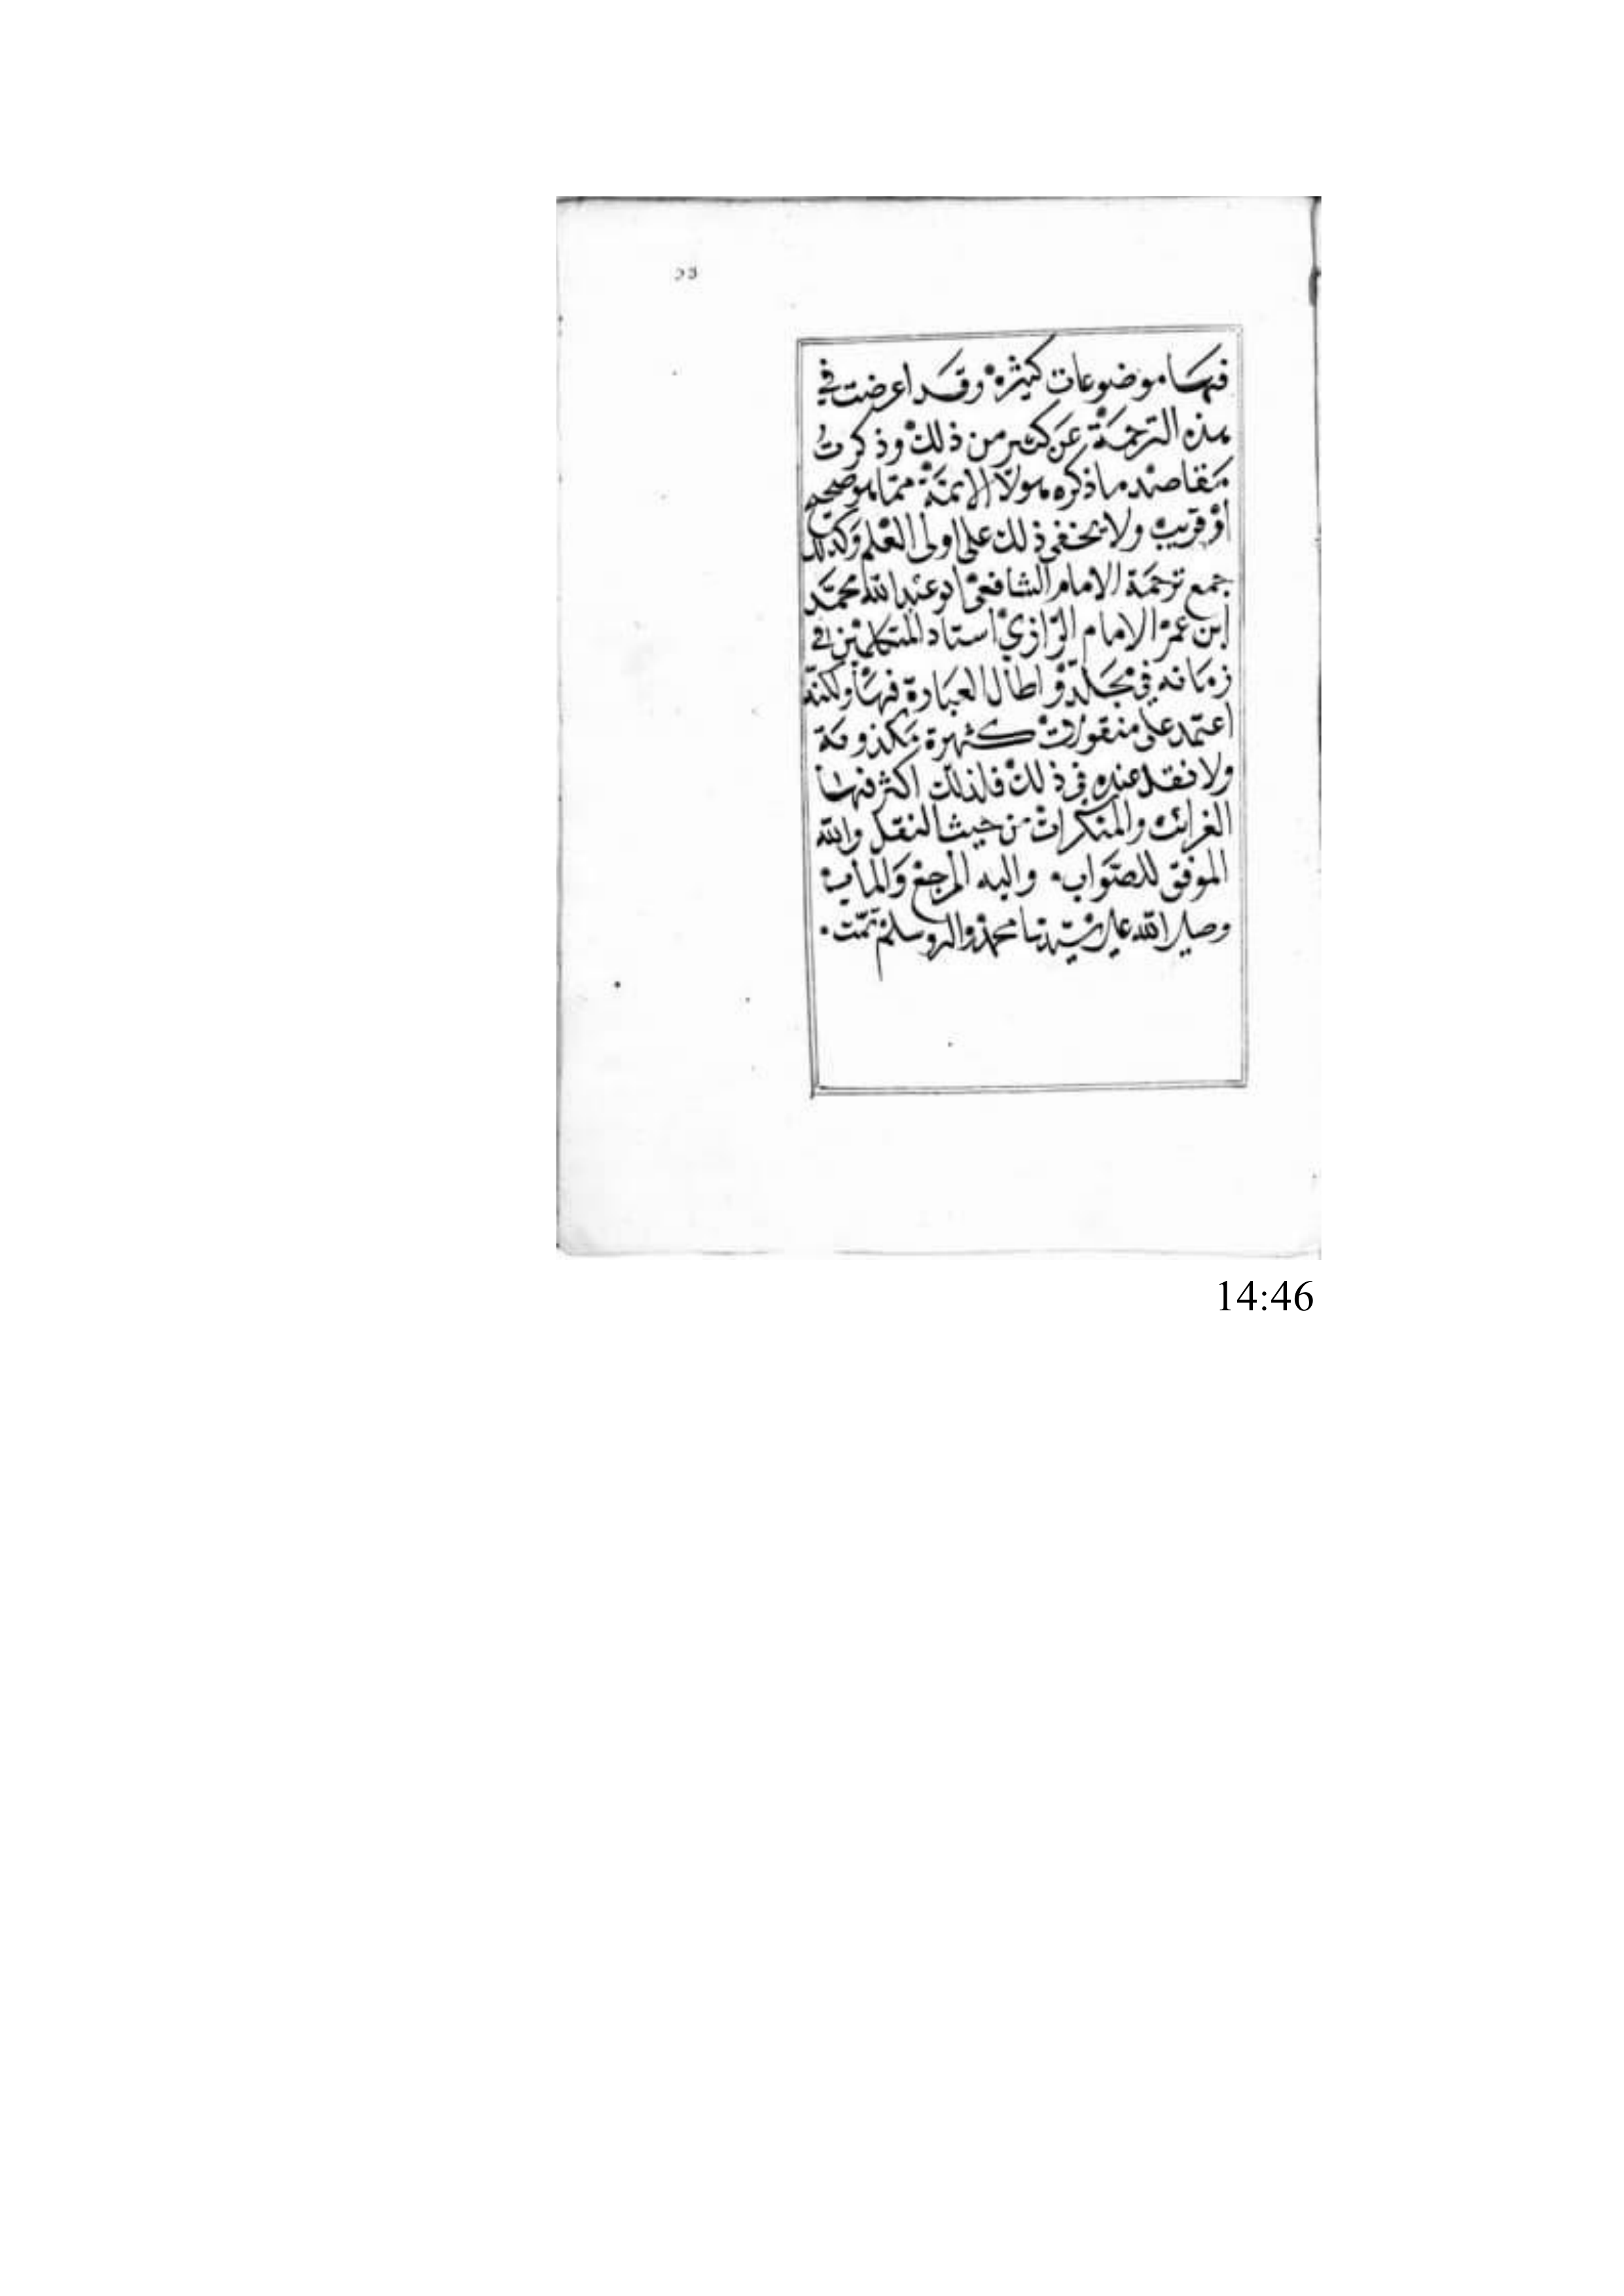 فيها موضوعات كثيرة وقد اعرضت في
هذه الترجمة عن كثير من ذلك وذكرت
مقاصد ما ذكره هولا الايمة مما هو صحيح
او قريب ولا يخفى ذلك على اولى العلم وكذلك
جمع ترجمة الامام الشافعي ابو عبد الله محمد
ابن عمر الامام الرازي استاد المتكلمين في
زمانه في مجلد واطال العبارة فيها ولكنه
اعتمد على منقولات كثيرة مكذوبة
ولا نقد عنده في ذلك فلذلك اكثر فيها
الغرائب والمنكرات من حيث النقل والله
الموفق للصواب. واليه المرجع والماب
وصلى الله على سيدنا محمد واله وسلم تمت.
14:46